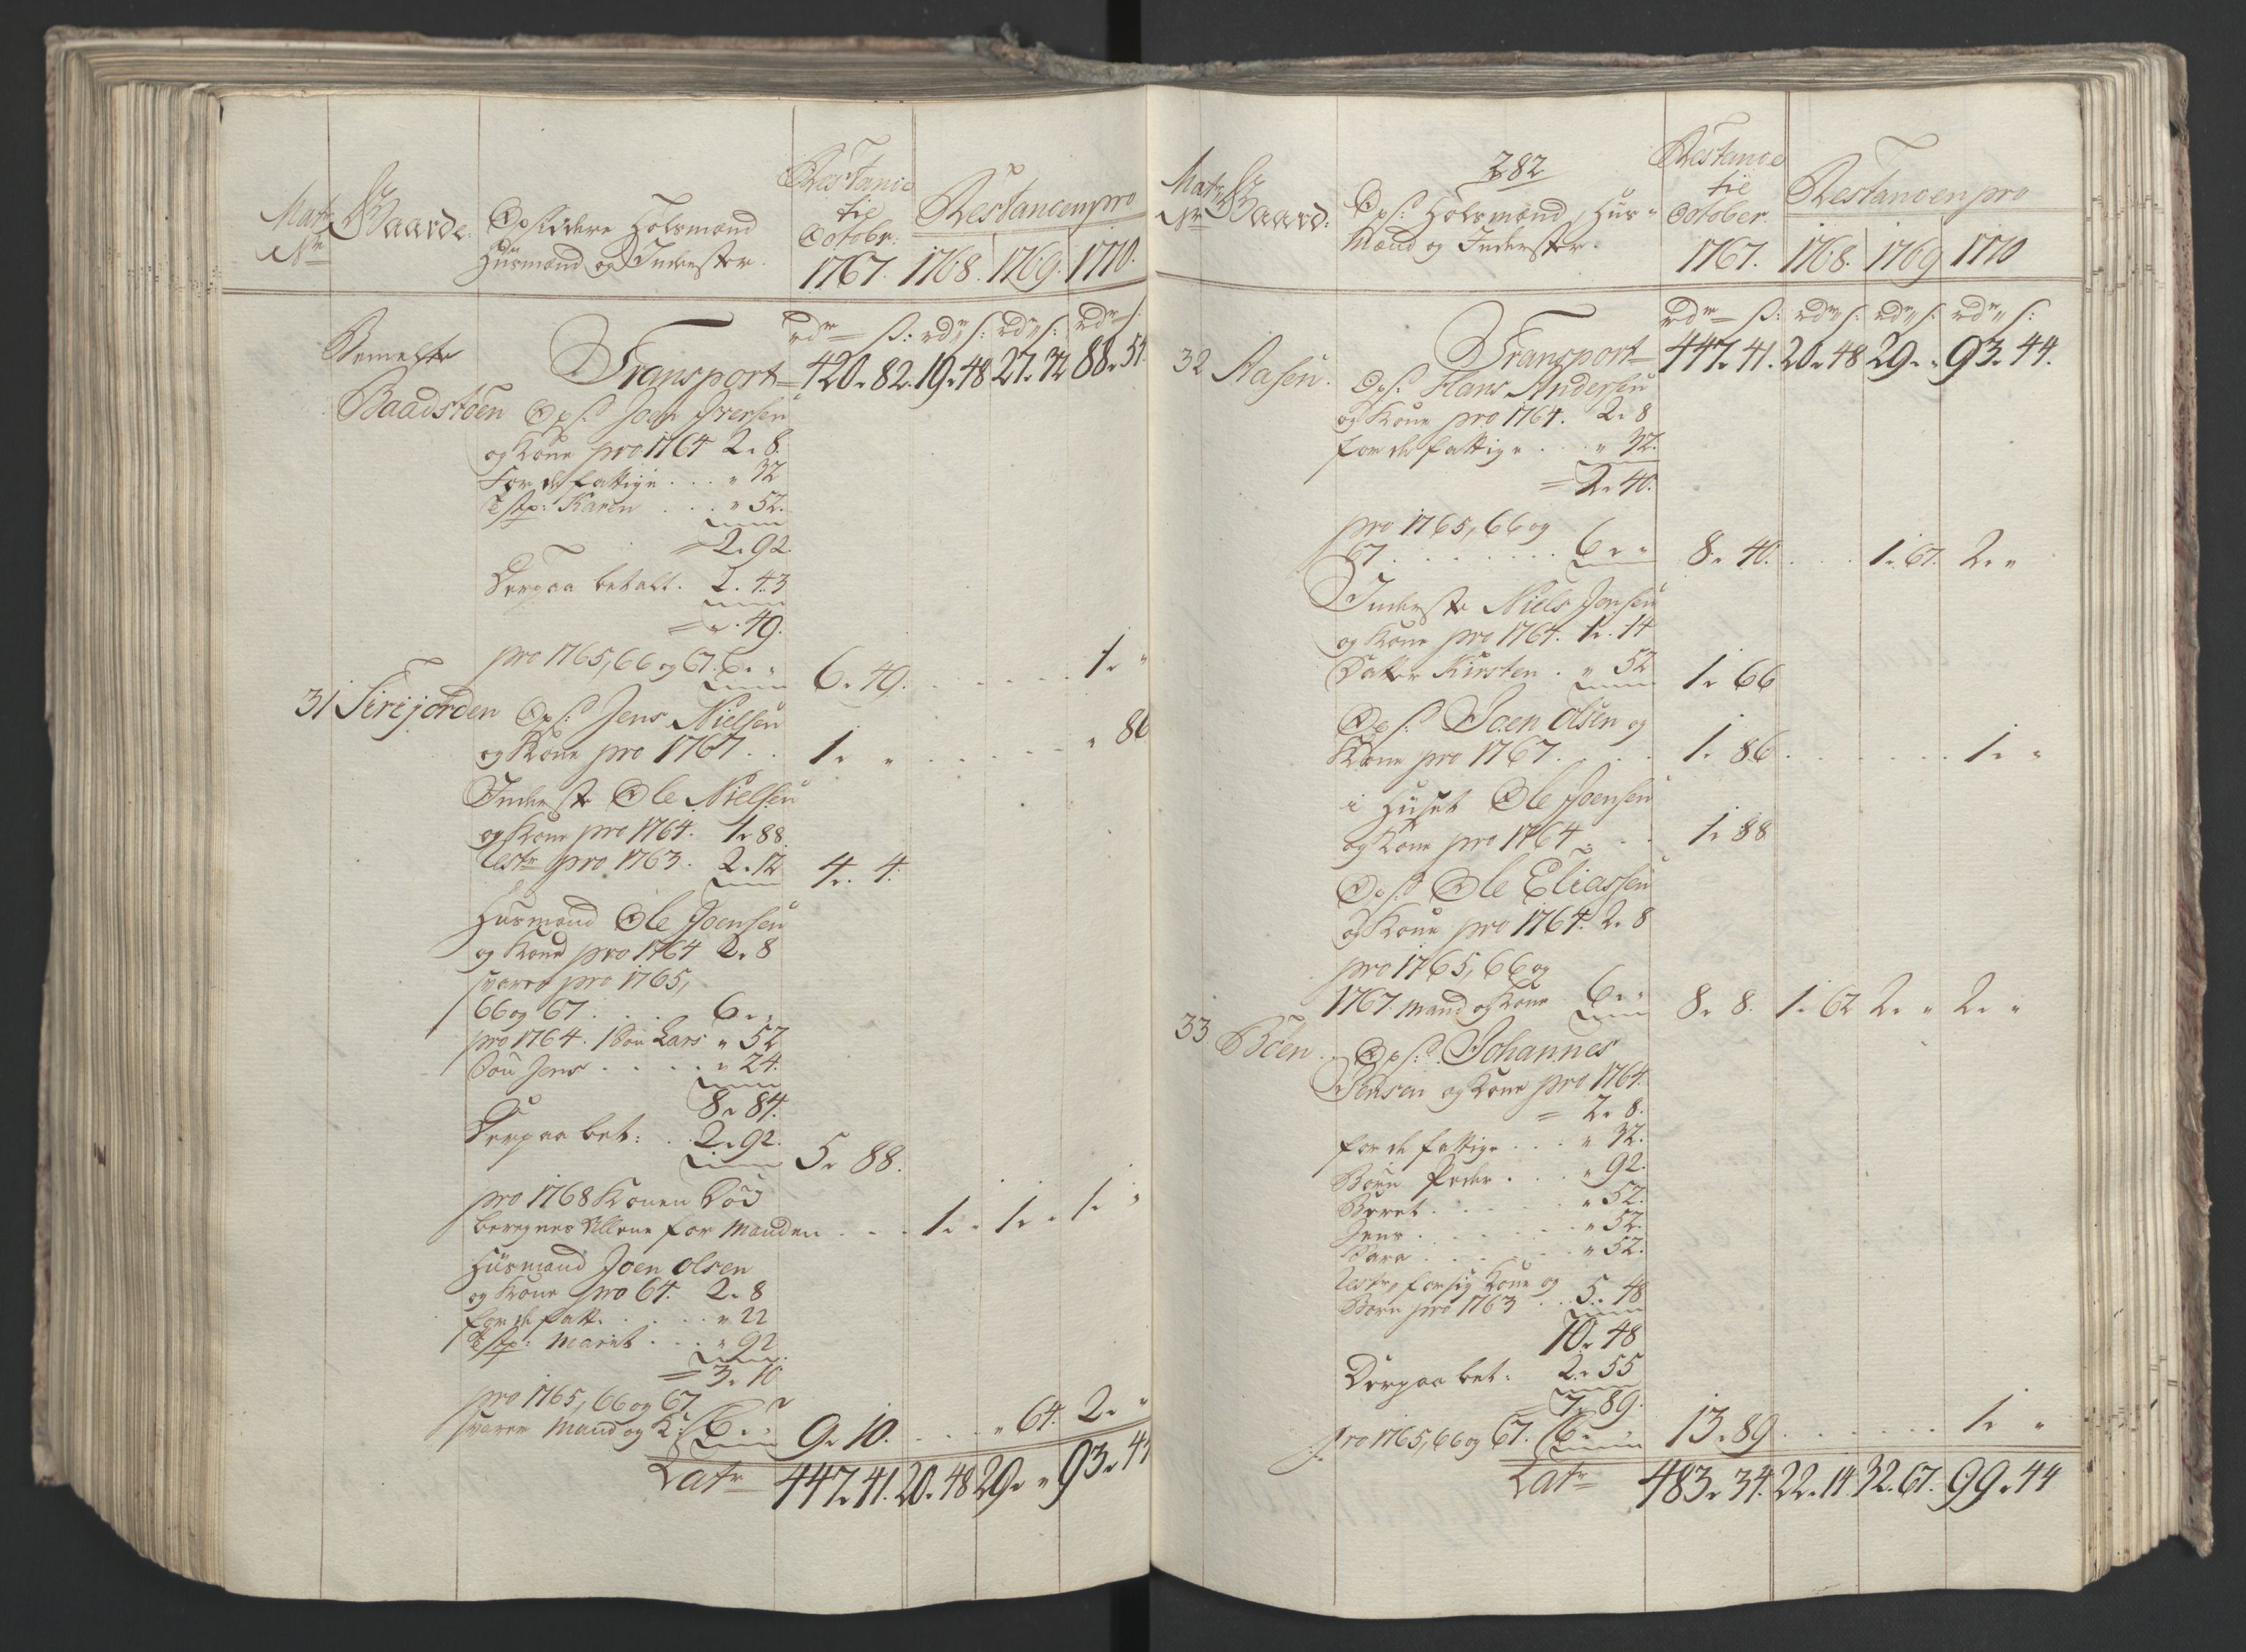 Matr Gaarde. Opsiddere Holsmænd Restance Restancen pro
Nr Huusmænd og Inderster. til
Octobr:
1767. 1768. 1769. 1770.
rdr ß: rdr ß: rdr ß: rdr ß:
Bemelte Transport 420. 82. 19. 48 27. 32 88. 54
Baadstøen Ops: Joen Iversen
og Kone pro 1764 2. 8.
For de fattige . . . " 32
Karen . . . " 52.
= 2. 92.
Derpaa betalt. 2. 43
= " . 49.
pro 1765, 66 og 67. 6. " 6. 49. . . . . . . 1. "
31 Sirijorden Ops: Jens Nielsen
og Kone pro 1767 . . 1. " . . . . . " 86
Inderste Ole Nielsen
og Kone pro 1764. 1. 88.
Restr pro 1763. 2. 12 4. 4.
Huusmand Ole Joensen
og Kone pro 1764 2. 8
svarer pro 1765,
66 og 67. . . . 6. "
pro 1764. 1 Søn Lars " 52
Søn Jens . . . . . " 24.
8. 84.
Derpaa bet: . . 2. 92. 5. 88.
pro 1768 Konen Død
beregnes Allene for Manden . . . 1. " 1. " 1. "
Huusmand Joen Olsen
og Kone pro 64. 2. 8
for de fatt. . . . . " 22
Marit . . . " 92
= 3. 10
pro 1765, 66 og 67
svarer Mand og K: 6. " 9. 10. . . . " 64. 2. "
Latr 447. 41. 20. 48 29. " 93. 44
282
Matr Gaard: Ops: Holsmænd, Huus- Restance Restancen pro
Nr Mænd og Inderster. til
October.
1767. 1768. 1769 1770
rdr ß: rdr ß: rdr ß: rdr ß:
Transport 447. 41. 20. 48 29. " 93. 44.
32 Aasen. Ops: Hans Andersen
og Kone pro 1764. 2. 8
for de fattige . . . " 32.
= 2. 40.
pro 1765, 66 og
67. . . . . . . . 6. " 8. 40. . . . 1. 67. 2. "
Inderste Niels Jensen
og Kone pro 1764. 1. 14
Datter Kirsten . " 52 1. 66
Ops: Joen Olsen og
Kone pro 1767. . . . . 1. 86. . . . . . . . 1. "
i Huset Ole Joensen
og Kone pro 1764. . . 1. 88
Ops: Ole Eliassen
og Kone pro 1764. 2. 8
pro 1765, 66 og
1767 Mand og Kone 6. " 8. 8. 1. 62 2. " 2. "
33. Bøen. Ops: Johannes
Jensen og Kone pro 1764.
= 2. 8.
for de fattige . . . " 32.
Børn Peder . . . " 92.
Beret . . . . . . " 52.
Jens . . . . . . . " 52.
Sara . . . . . . " 52.
Restr, for sig Kone og
Børn pro 1763 . . 5. 48
10. 48
Derpaa bet: 2. 55
7. 89.
pro 1765, 66 og 67. 6. " 13. 89. . . . . . . . 1. "
Latr 483. 34. 22. 14 32. 67. 99. 44